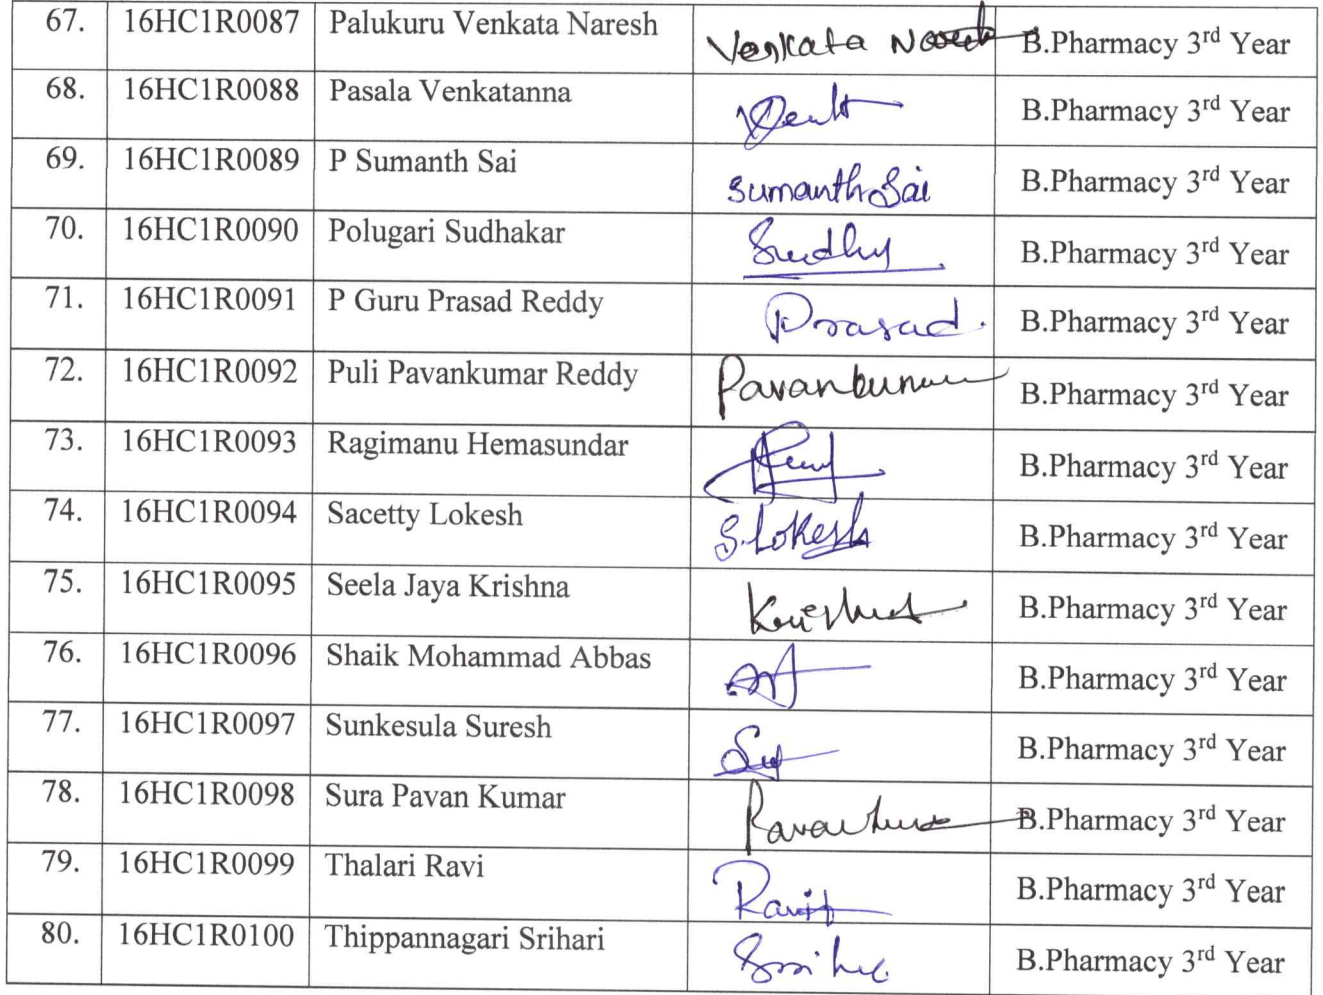 67. 16HC1R0087 Palukuru Venkata Naresh Venkata Naresh B.Pharmacy 3rd Year
68. 16HC1R0088 Pasala Venkatanna Venkt B.Pharmacy 3rd Year
69. 16HC1R0089 P Sumanth Sai Sumanth Sai B.Pharmacy 3rd Year
70. 16HC1R0090 Polugari Sudhakar B.Pharmacy 3rd Year
71. 16HC1R0091 P Guru Prasad Reddy Prasad. B.Pharmacy 3rd Year
72. 16HC1R0092 Puli Pavankumar Reddy Pavankumar B.Pharmacy 3rd Year
73. 16HC1R0093 Ragimanu Hemasundar B.Pharmacy 3rd Year
74. 16HC1R0094 Sacetty Lokesh S.Lokesh B.Pharmacy 3rd Year
75. 16HC1R0095 Seela Jaya Krishna Krishna B.Pharmacy 3rd Year
76. 16HC1R0096 Shaik Mohammad Abbas B.Pharmacy 3rd Year
77. 16HC1R0097 Sunkesula Suresh B.Pharmacy 3rd Year
78. 16HC1R0098 Sura Pavan Kumar B.Pharmacy 3rd Year
79. 16HC1R0099 Thalari Ravi Ravi B.Pharmacy 3rd Year
80. 16HC1R0100 Thippannagari Srihari B.Pharmacy 3rd Year